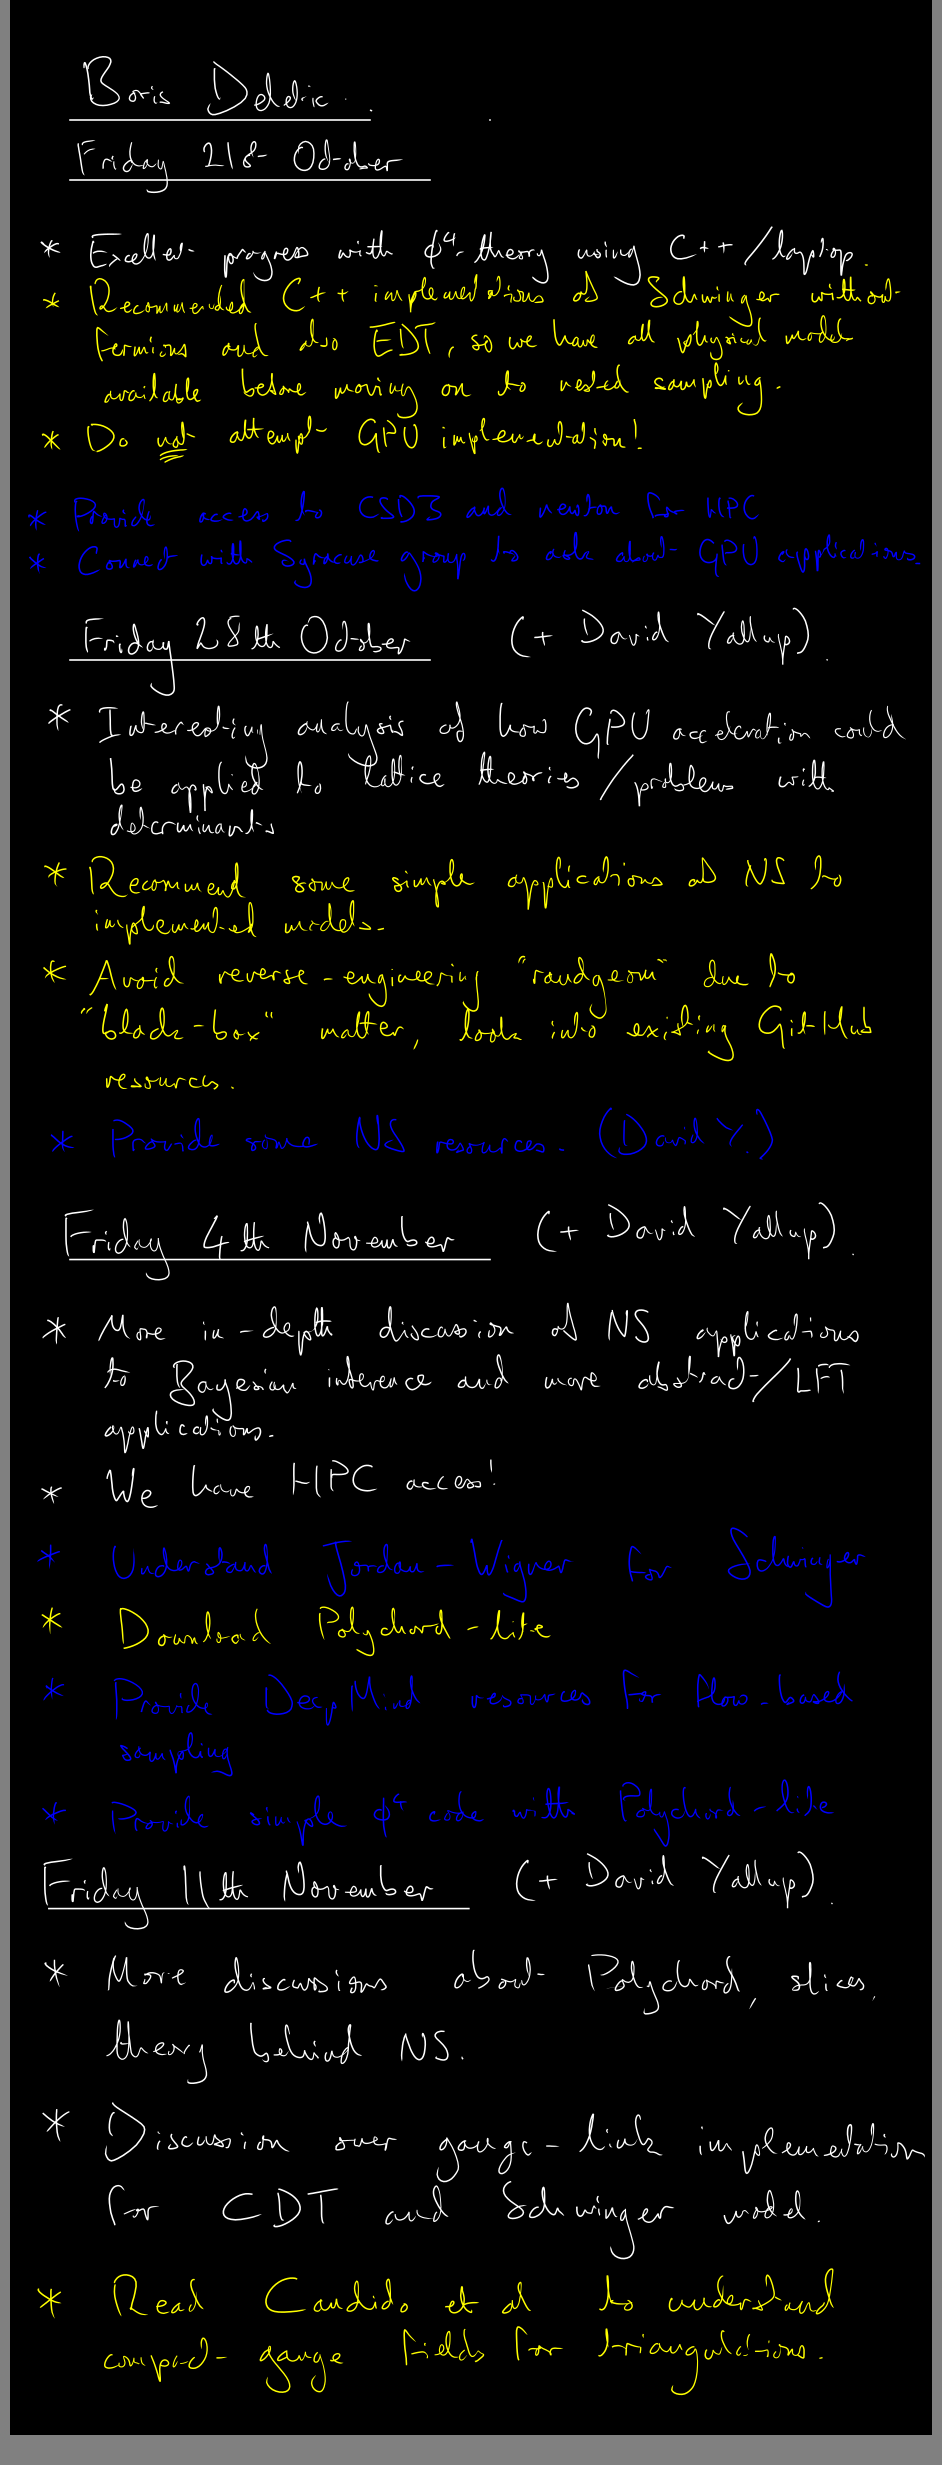 Boris Deldic.
Friday 21st October
* Excellent progress with ϕ⁴-theory using C++/laptop.
* Recommended C++ implementations of Schwinger without
fermions and also EDT, so we have all physical models
available before moving on to nested sampling.
* Do not attempt GPU implementation!
* Provide access to CSD3 and newton for HPC
* Connect with Syracuse group to ask about GPU applications.
Friday 28th October (+ David Yallup).
* Interesting analysis of how GPU acceleration could
be applied to lattice theories/problems with
determinants
* Recommend some simple applications of NS to
implemented models.
* Avoid reverse-engineering "randgeom" due to
"black-box" matter, look into existing GitHub
resources.
* Provide some NS resources. (David Y.)
Friday 4th November (+ David Yallup).
* More in-depth discussion of NS applications
to Bayesian inference and more abstract/LFT
applications.
* We have HPC access!
* Understand Jordan-Wigner for Schwinger
* Download Polychord-lite
* Provide DeepMind resources for flow-based
sampling
* Provide simple ϕ⁴ code with Polychord-lite
Friday 11th November (+ David Yallup).
* More discussions about Polychord, slices,
theory behind NS.
* Discussion over gauge-link implementation
for CDT and Schwinger model.
* Read Candido et al to understand
compact gauge fields for triangulations.